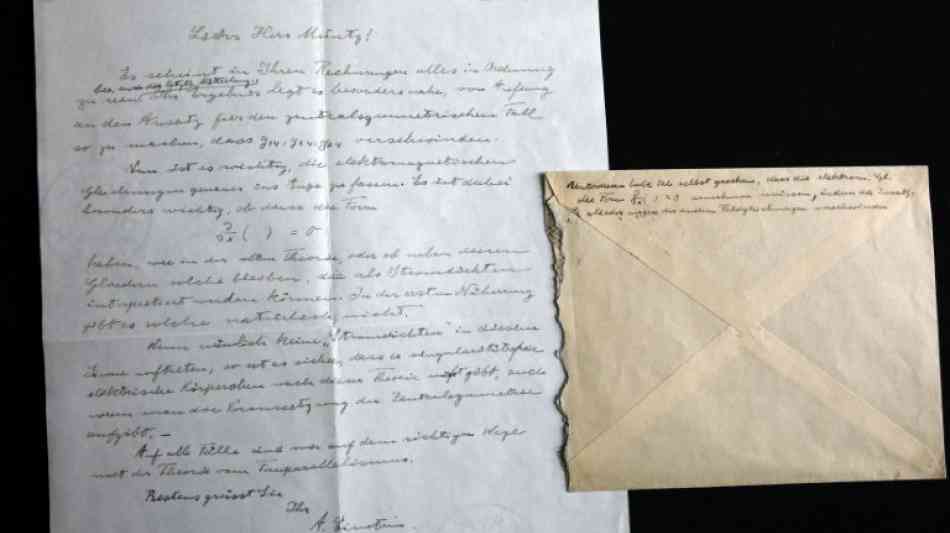 Lieber Herr Müntz!
Es scheint in Ihren Rechnungen alles in Ordnung
zu sein. Ihr Ergebnis legt es besonders nahe, von
an den Ansatz für den zentralsymmetrischen Fall
so zu machen, dass g14, g24, g34 verschwinden.
Nun ist es wichtig, die elektromagnetischen
Gleichungen genauer ins Auge zu fassen. Es ist dabei
besonders wichtig, ob diese die Form
∂/∂x ( ) = 0
haben, wie in der alten Theorie, oder ob neben diesen
Gliedern solche bleiben, die als Stromdichten
interpretiert werden können. In der ersten Näherung
gibt es solche natürlich nicht.
Wenn nämlich keine „Stromdichten" in diesem
Sinne auftreten, so ist es sicher, dass es singularitätsfreie
elektrische Körperchen nach dieser Theorie nicht gibt, auch
wenn man die Voraussetzung der Zentralsymmetrie
aufgibt. —
Auf alle Fälle sind wir auf dem richtigen Wege
mit der Theorie vom Fernparallelismus.
Bestens grüsst Sie
Ihr
A. Einstein.
habe ich selbst gesehen, dass die elektrom. Gl.
die Form ∂/∂x ( ) = 0 annehmen müssen, indem die
wegen der anderen Feldgleichungen verschwinden